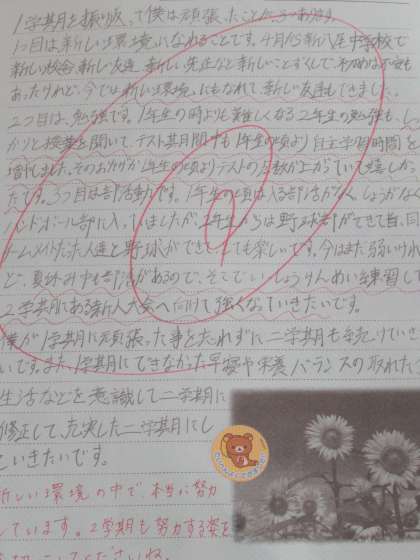 1学期を振り返って僕は頑張ったことが3つあります。
1つ目は新しい環境になれることです。4月から新八尾中学校で
新しい校舎、新しい友達、新しい先生など新しいことずくしで初めは不安も
あったけれど、今では新しい環境にもなれて新しい友達もできました。
2つ目は、勉強です。1年生の時よりも難しくなる2年生の勉強も、しっ
かりと授業を聞いて、テスト期間中も1年生の頃より自主学習時間を
増やしました。そのおかげか1年生の頃よりテストの点数が上がっていて嬉しかっ
たです。3つ目は部活動です。1年生の頃は入る部活がなく、しょうがなく
ハンドボール部に入っていましたが、2年生からは野球部ができて昔、同じ
チームメイトだった人達と野球ができてとても楽しいです。今はまだ弱いけれ
ど、夏休み中も部活があるので、そこでいっしょうけんめい練習して
2学期にある新人大会へむけて強くなっていきたいです。
僕が1学期に頑張った事を忘れずに二学期も続けていきた
いです。また、1学期にできなかった早寝や栄養バランスの取れた
生活などを意識して二学期に
修正して、充実した二学期にし
ていきたいです。
新しい環境の中で本当に努力
しています。2学期も努力する姿を